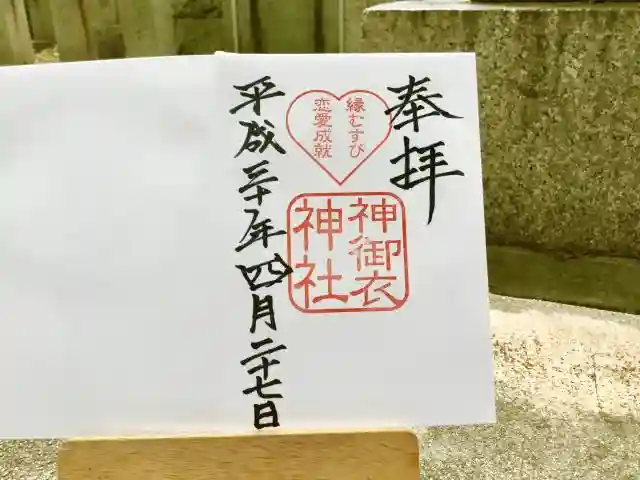 奉拝
縁むすび
恋愛成就
神御衣
神社
平成三十年四月二十七日